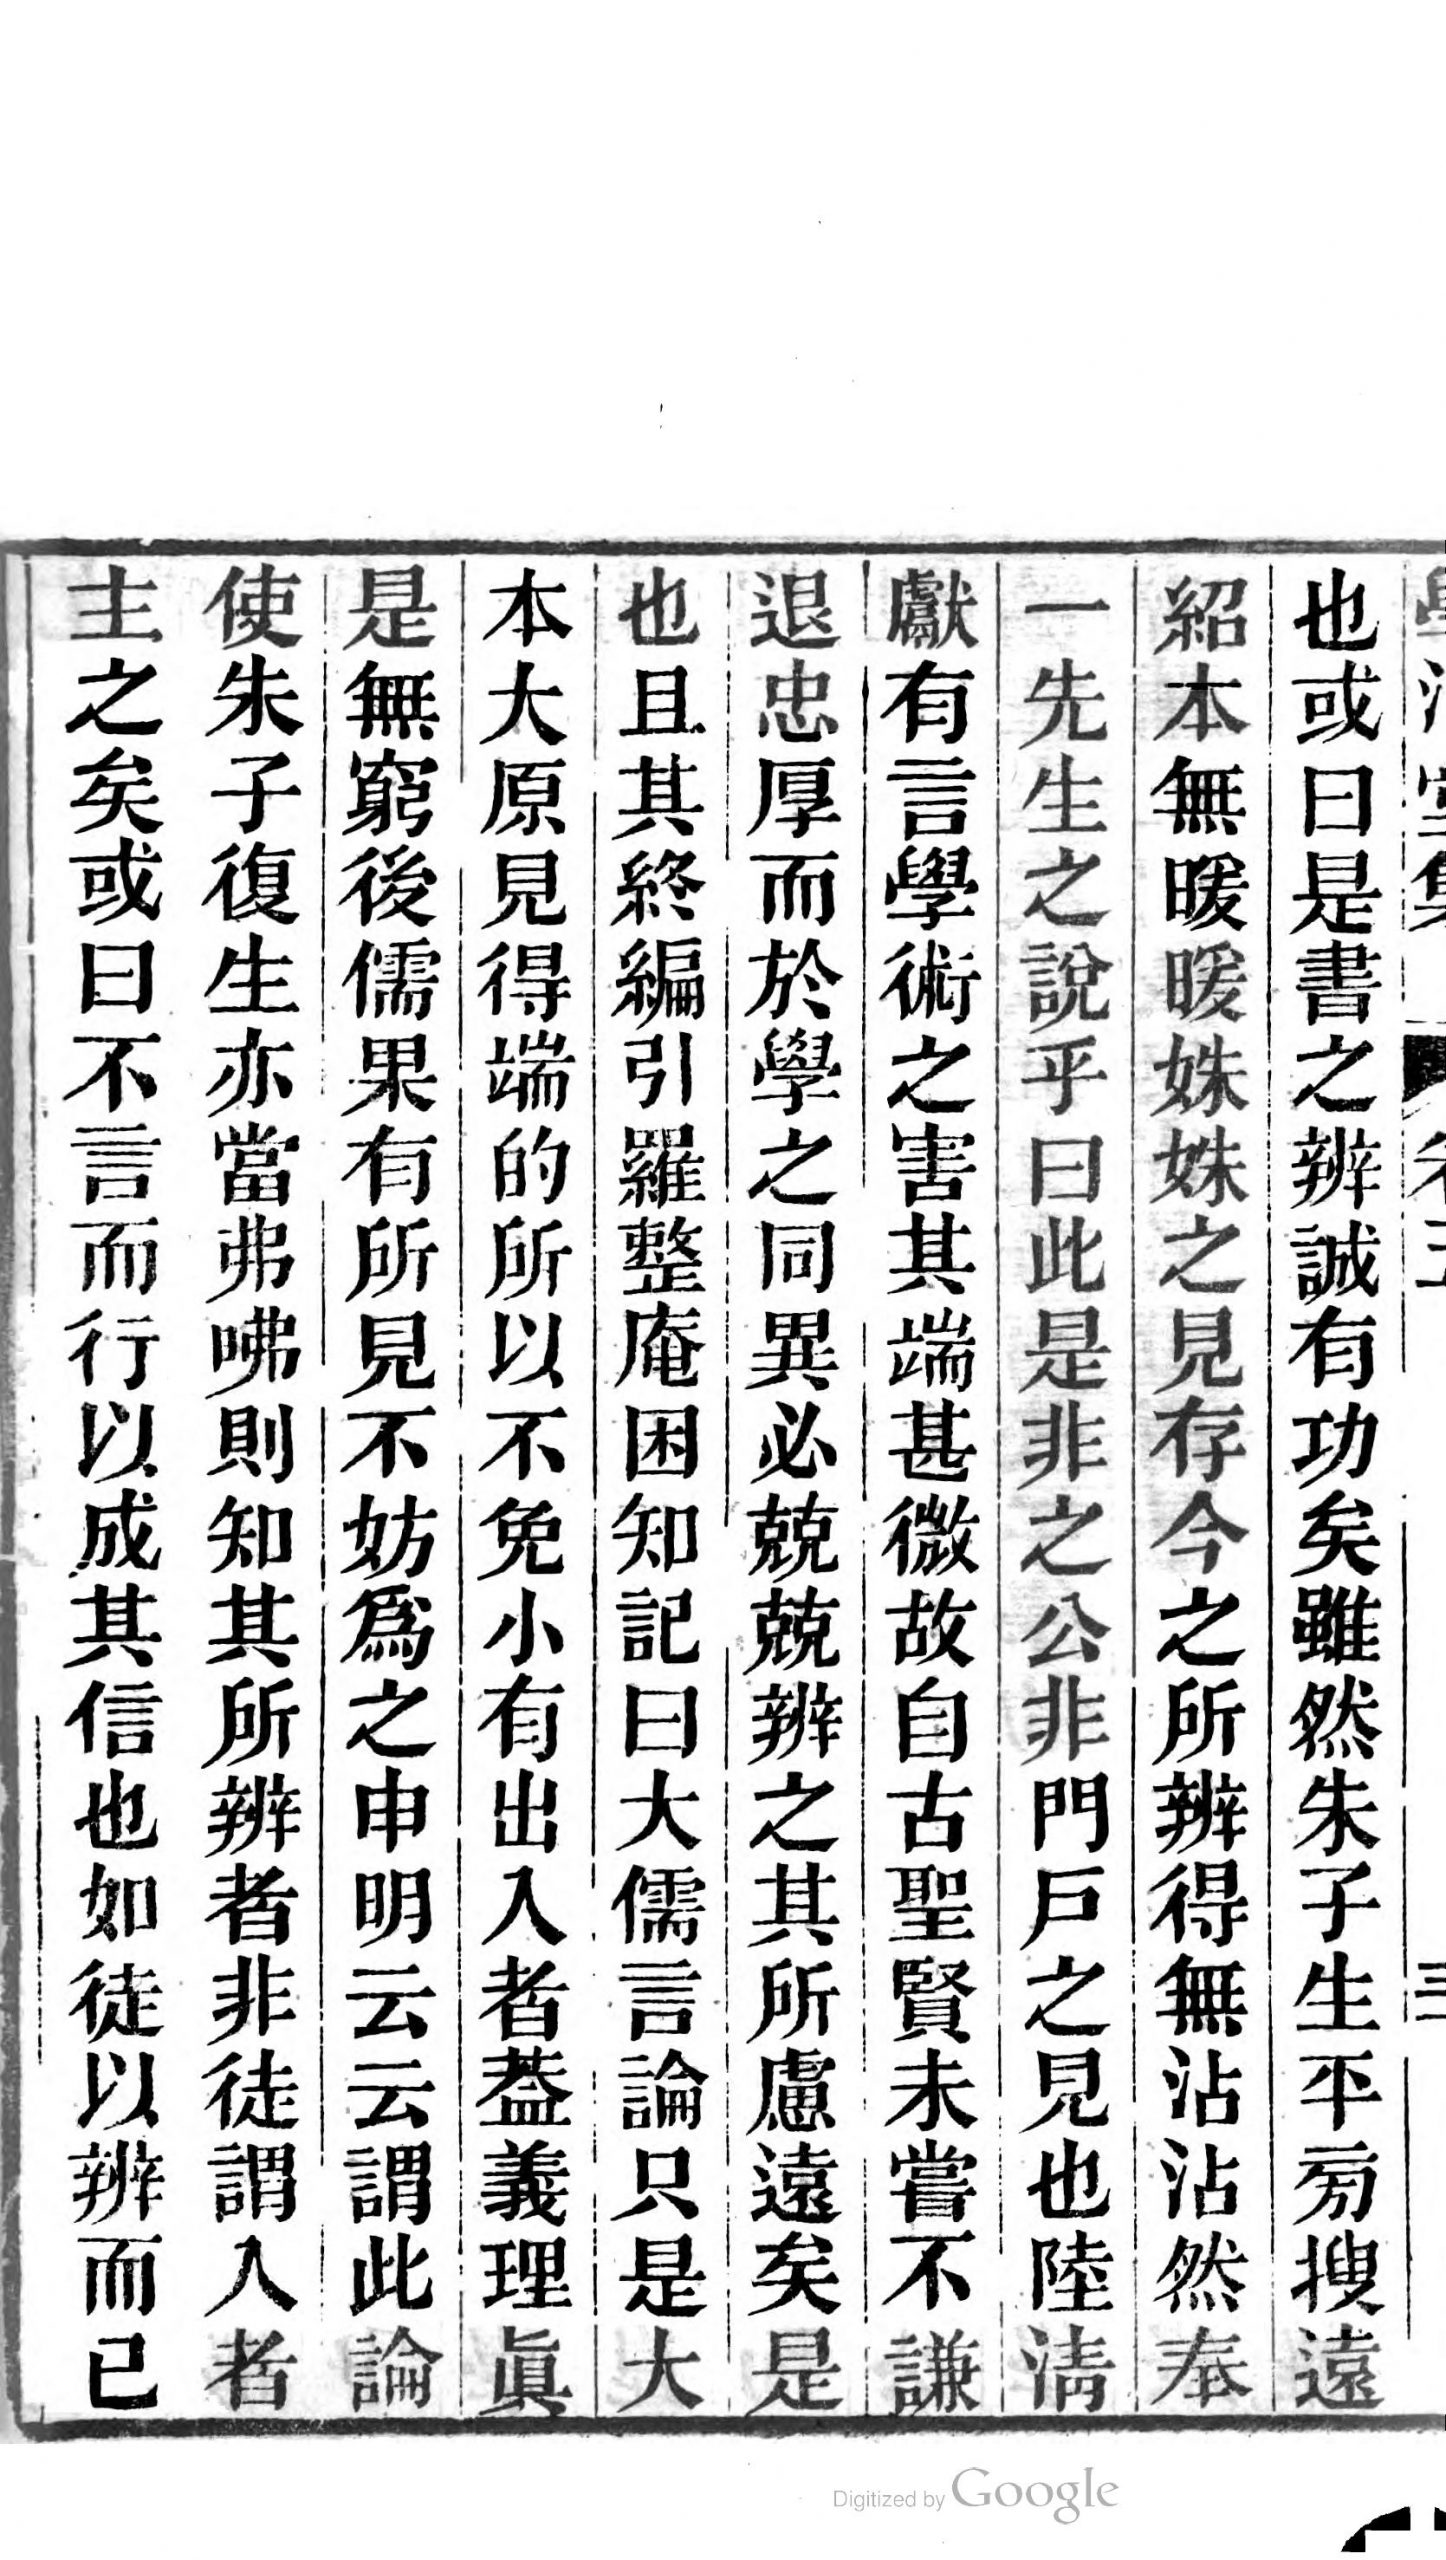 也或曰是書之辨誠有功矣雖然朱子生平㫄搜遠
紹本無暖暖姝姝之見存今之所辨得無沾沾然奉
一先生之說乎曰此是非之公非門戶之見也陸淸
獻有言學術之害其端甚微故自古聖賢未嘗不謙
退忠厚而於學之同異必兢兢辨之其所慮遠矣是
也且其終編引羅整庵困知記曰大儒言論只是大
本大原見得端的所以不免小有出入者葢義理眞
是無窮後儒果有所見不妨爲之申明云云謂此論
使朱子復生亦當弗咈則知其所辨者非徒謂入者
主之矣或曰不言而行以成其信也如徒以辨而已
Digitized by Google